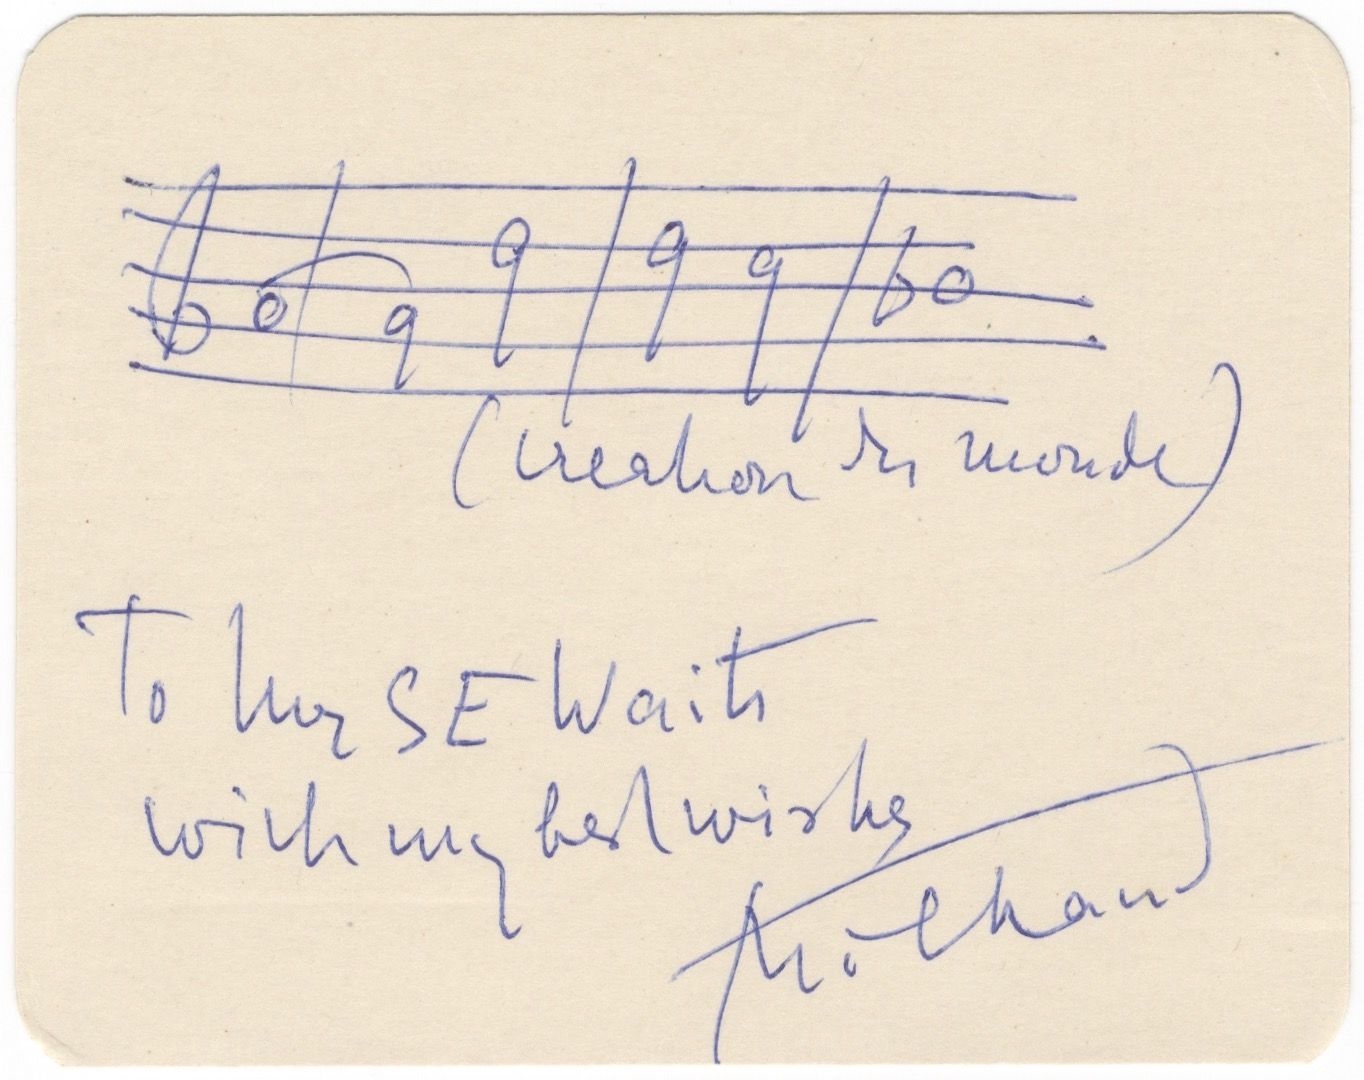 (Creation du monde)
To Mr S E Waits
with my best wishes
Milhaud